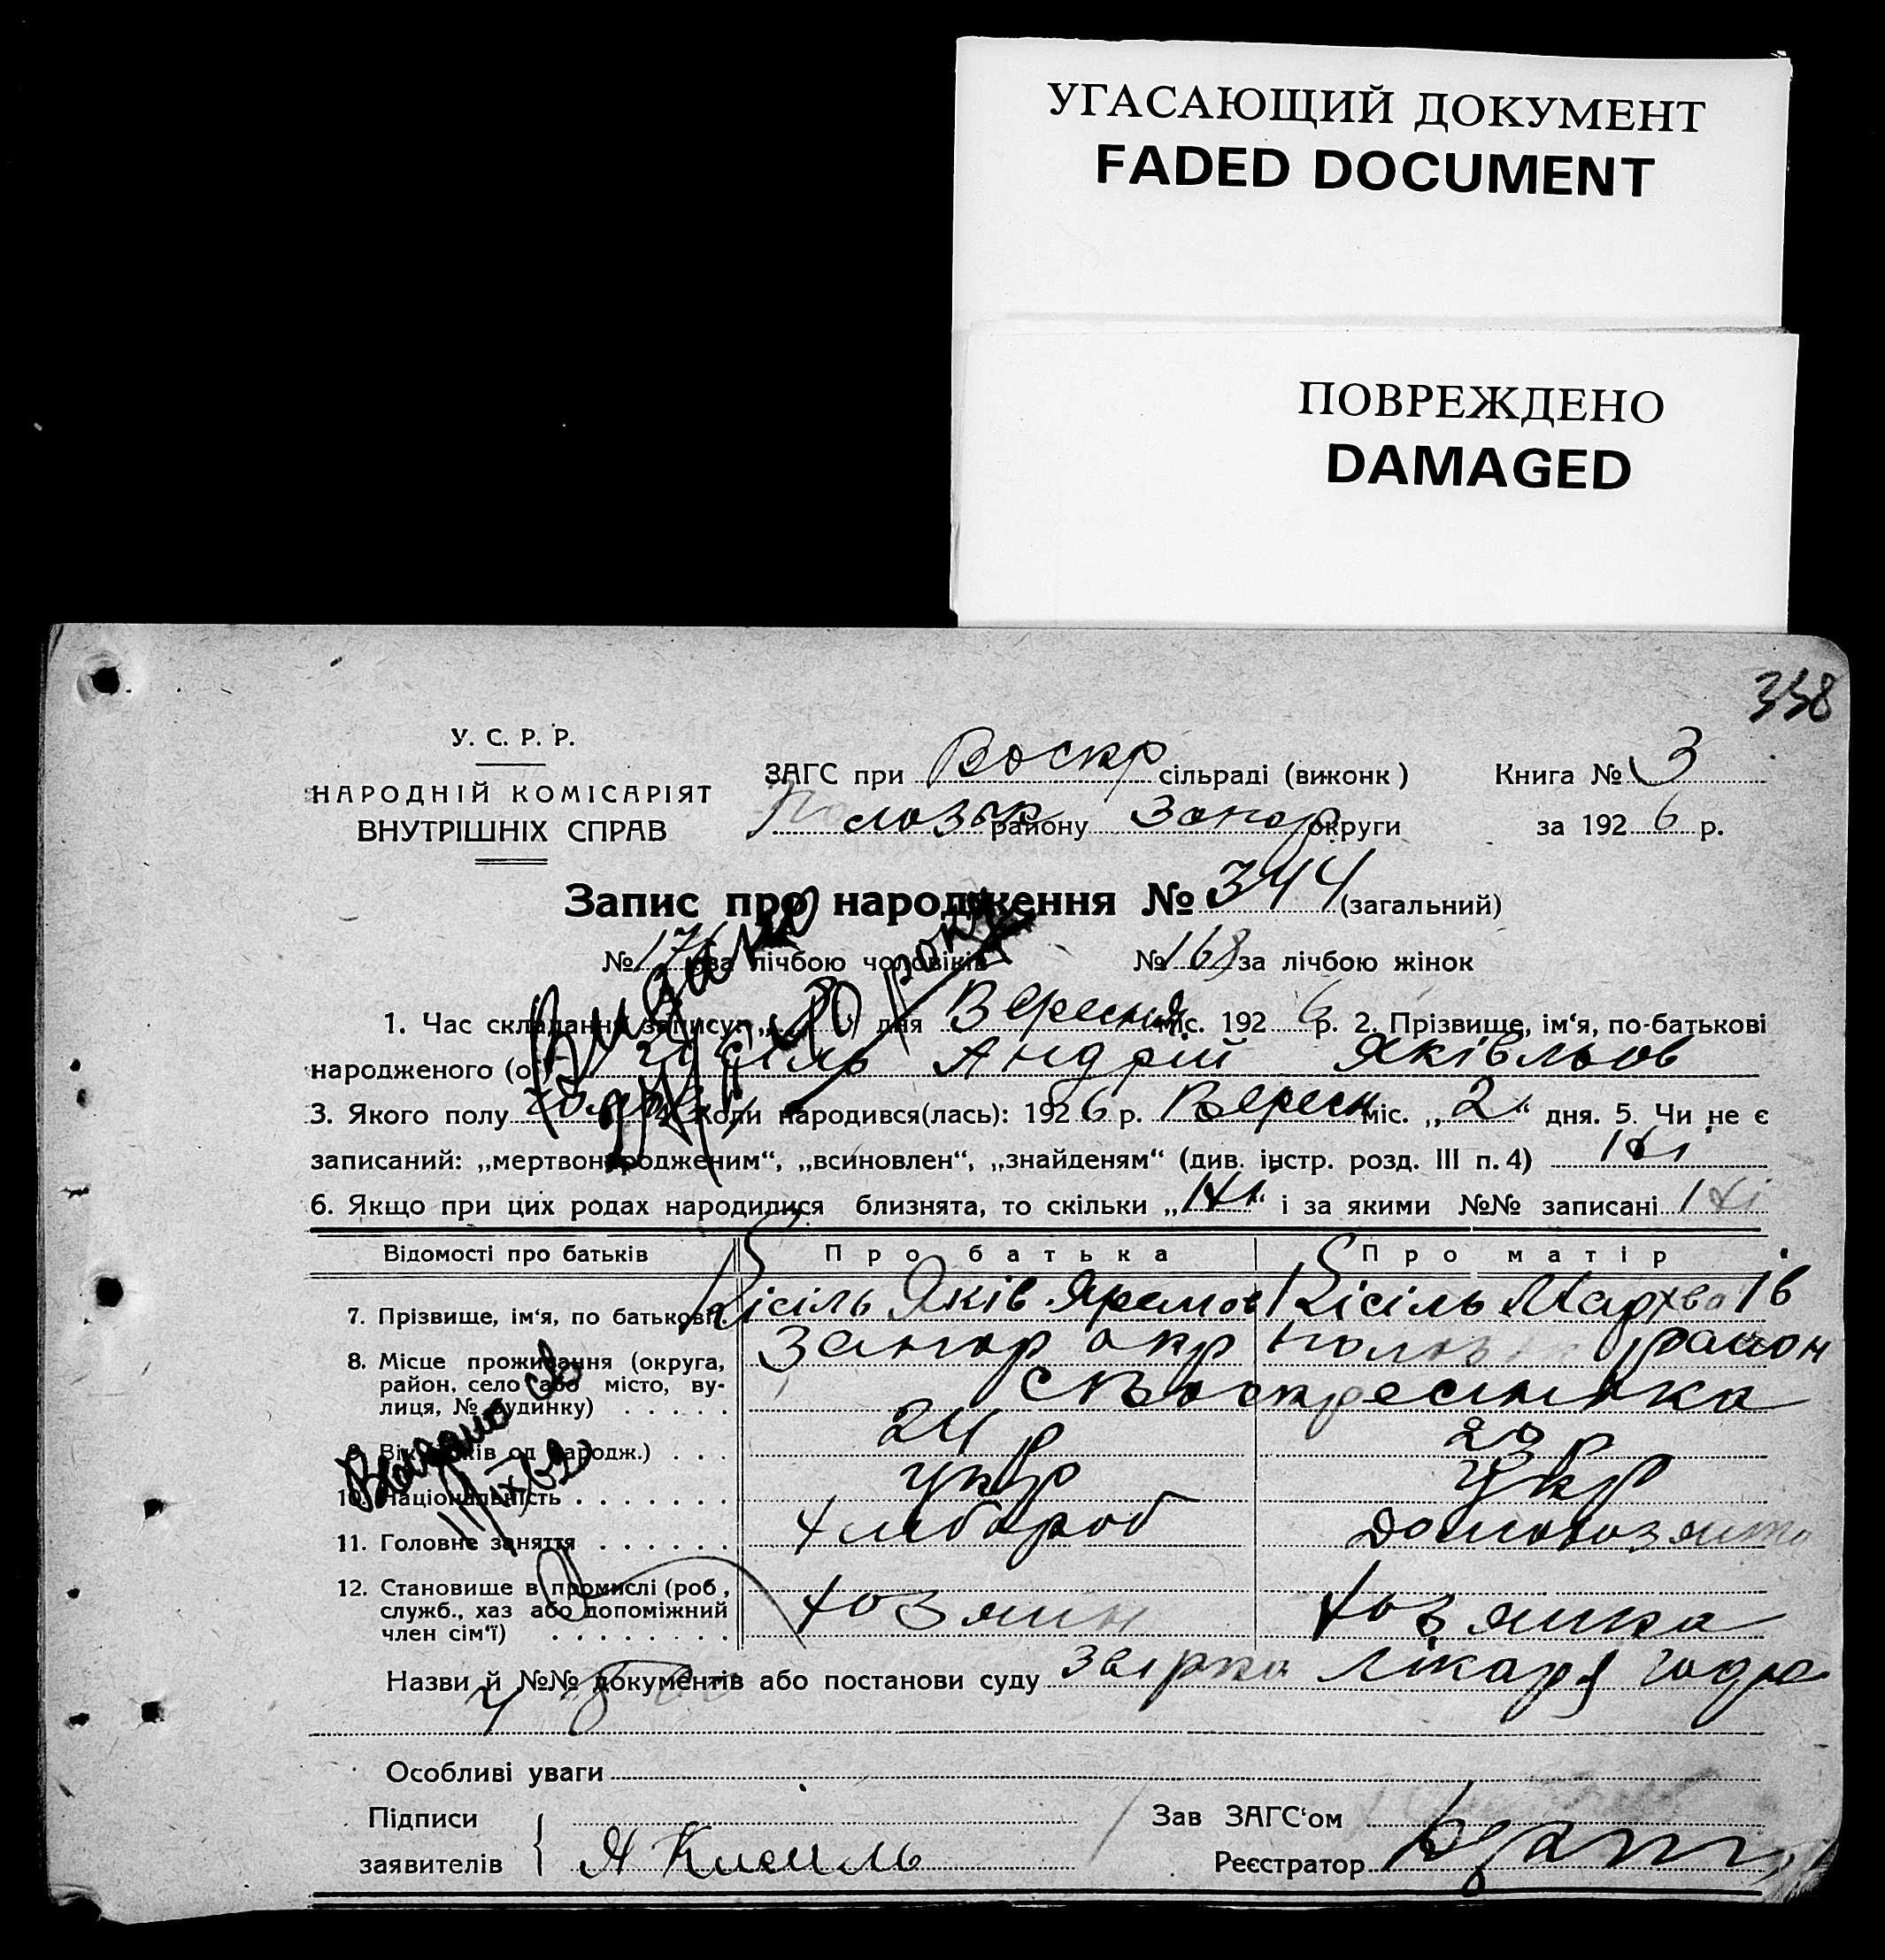 УГАСАЮЩИЙ ДОКУМЕНТ
FADED DOCUMENT
ПОВРЕЖДЕНО
DAMAGED
338
У. С. Р. Р.
НАРОДНІЙ КОМІСАРІЯТ
ВНУТРІШНІХ СПРАВ
ЗАГС при Воскр сільраді (виконк) Книга № 3
Полозьк району Запор округи за 1926 р.
Запис про народження № 344 (загальний)
№ 176 за лічбою чоловіків № 168 за лічбою жінок
1. Час складання запису: „ “ дня Вересня міс. 1926 р. 2. Прізвище, ім‘я, по-батькові
народженого (ої) Кісіль Андрій Яківльов
3. Якого полу 4. Коли народився(лась): 1926 р. Вересн міс. „2“ дня. 5. Чи не є
записаний: „мертвонародженим“, „всиновлен“, „знайденям“ (див. інстр. розд. III п. 4) Ні
6. Якщо при цих родах народилися близнята, то скільки „Ні“ і за якими №№ записані Ні
Відомості про батьків Про батька Про матір
7. Прізвище, ім‘я, по батькові. Кісіль Яків Яремов Кісіль Мархва Ів
8. Місце проживання (округа, район, село або місто, вулиця, № будинку) Запор окр Полозьк район
с Воскресинька
9. Вік (років од народж.) 24 р 23 р
10. Національність укр укр
11. Головне заняття хлібороб
12. Становище в промислі (роб., служб., хаз або допоміжний член сім‘ї) хозяин хозяйка
Назви й №№ документів або постанови суду лікаря
Особливі уваги
Підписи Зав ЗАГС‘ом
заявителів Я Кисиль Реєстратор
Видано